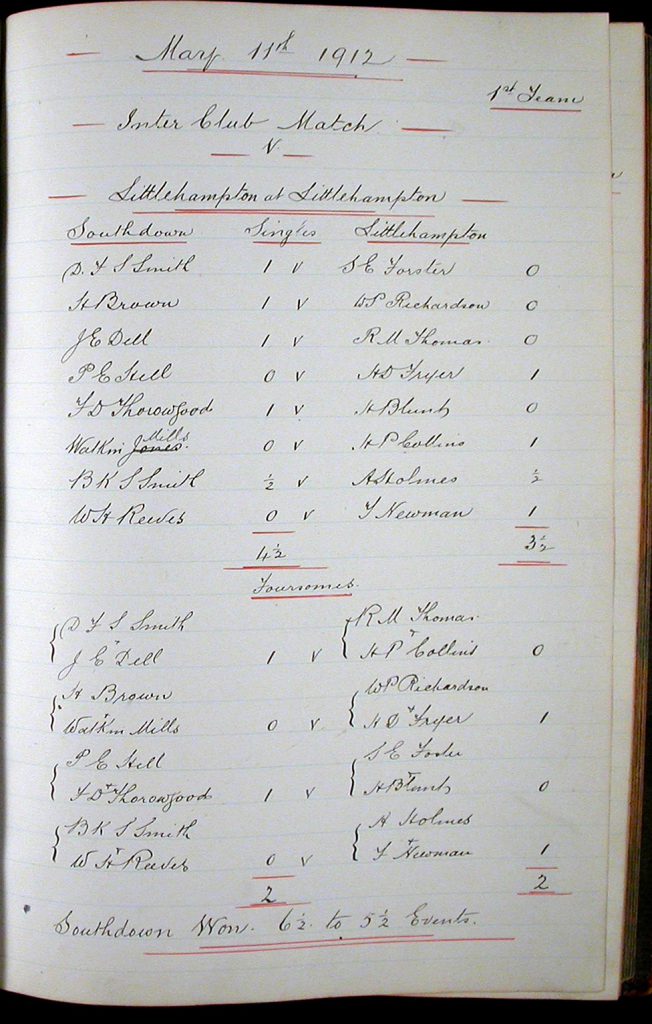 May 11th 1912
1st Team
Inter Club Match
V
Littlehampton at Littlehampton
Southdown Singles Littlehampton
D. F S Smith 1 v S E Forster 0
H Brown 1 v W P Richardson 0
J E Dell 1 v R M Thomas. 0
P E Hill 0 v H D Fryer 1
F D Thorowgood 1 v H Blunt 0
Mills
Watkin Jones. 0 v H P Collins 1
B K S Smith ½ v A Holmes ½
W H Reeves 0 v F Newman 1
4½ 3½
Foursomes.
D F S Smith R M Thomas.
J E Dell 1 v H P Collins 0
H Brown W P Richardson
Watkin Mills 0 v H D Fryer 1
P E Hill S E Foster
F D Thorowgood 1 v H Blunt 0
B K S Smith A Holmes
W H Reeves 0 v F Newman 1
2 2
Southdown Won. 6½ to 5½ Events.